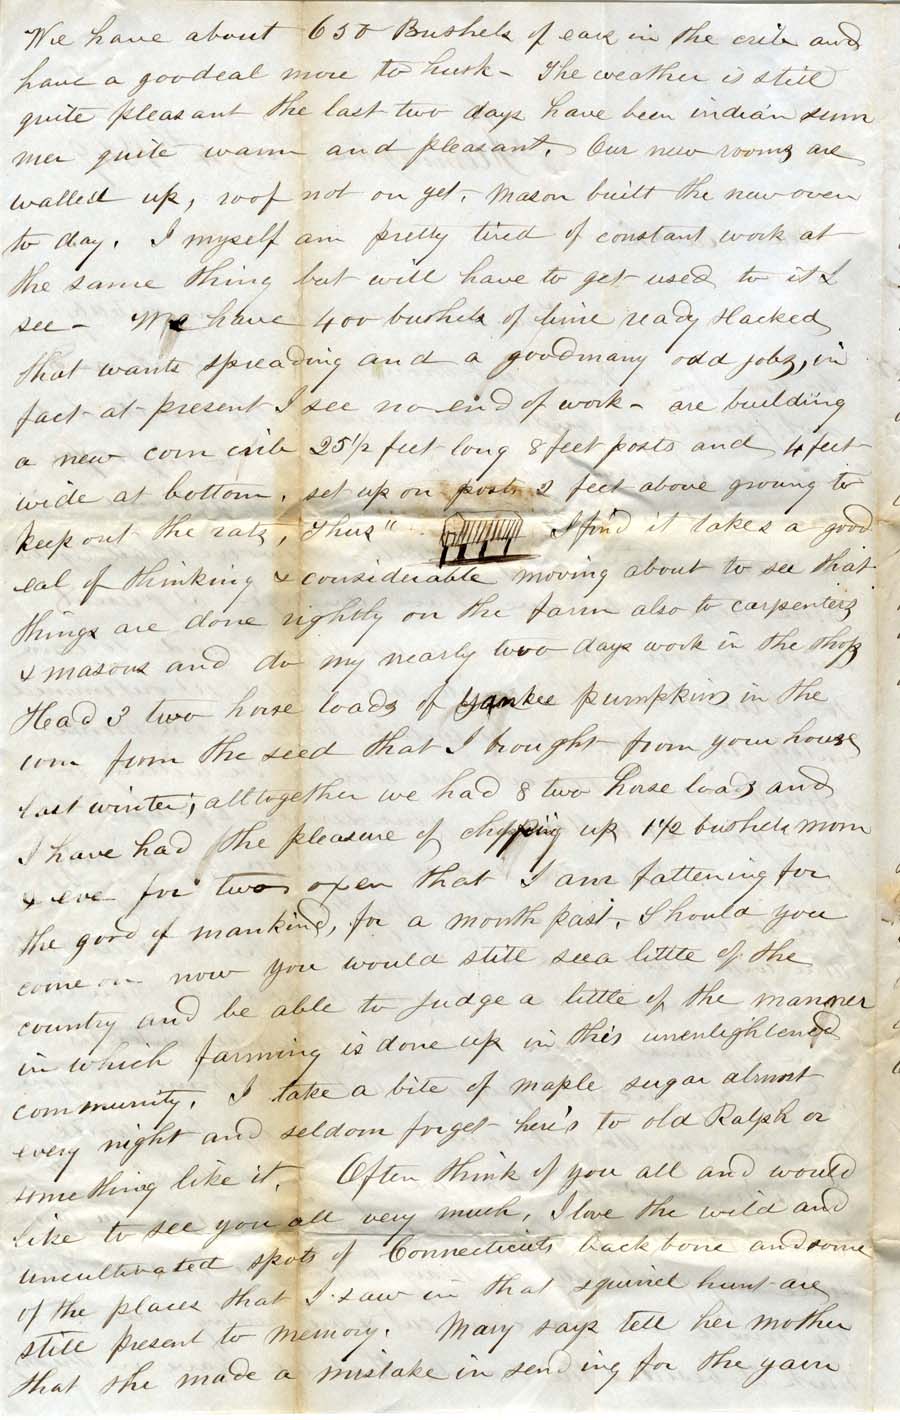 We have about 650 Bushels of ears in the crib and
have a goodeal more to husk - The weather is still
quite pleasant the last two days have been indian sum
mer quite warm and pleasant. Our new rooms are
walled up, roof not on yet. Mason built the new oven
to day. I myself am pretty tired of constant work at
the same thing but will have to get used to it I
see - We have 400 bushels of lime ready slacked
that wants spreading and a goodmany odd jobs, in
fact at present I see no end of work - are building
a new corn crib 25 1/2 feet long 8 feet posts and 4 feet
wide at bottom. set up on posts 2 feet above groung to
keep out the rats, Thus" I find it takes a good
eal of thinking & considerable moving about to see that
things are done rightly on the farm also to carpenters
& masons and do my nearly two days work in the shop
Head 3 two horse loads of yankee pumpkins in the
corn from the seed that I brought from your house
last winter; alltogether we had 8 two horse loads and
I have had the pleasure of chopping up 1 1/2 bushels morn
& eve for two oxen that I am fattening for
the good of mankind, for a month past. Should you
come on now you would still see a little of the
country and be able to judge a little of the manner
in which farming is done up in this unenlightened
community. I take a bite of maple sugar almost
every night and seldom forget here's to old Ralph or
something like it. Often think of you all and would
like to see you all very much, I love the wild and
uncultivated spots of Connecticuts back bone and some
of the places that I saw in that squirrel hunt are
still present to memory. Mary says tell her mother
that she made a mistake in sending for the yarn